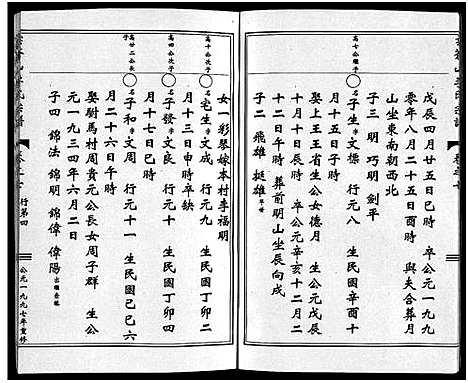 戊辰四月廿五日巳時 卒公元一九九
零年八月二十五日酉時 與夫合葬月
山坐東南朝西北
子三 明 巧明 劍平
高七公繼子
名子生 文標 行元八 生民國辛酉十
月十五日 時
娶上王王省生公女德月 生公元戊辰
年七月十八日 卒公元辛亥十二月二
十二日午時 葬前明山坐辰向戌
子二 飛雄 挺雄
女一彩琴嫁本村李福明
高十公次子
名宅生 文成 行元九 生民國丁卯二
月十三日申時卒缺
高四公次子
名子發 文良 行元十 生民國丁卯四
月十七日巳時
高廿二公長子
名子和 文周 行元十一 生民國己巳六
月二十六日午時
娶尉馬村周貴元公長女周子群 生公
元一九三四年六月二日
子四 錦法 錦明 錦偉 偉陽
行第四
公元一九九七年重修